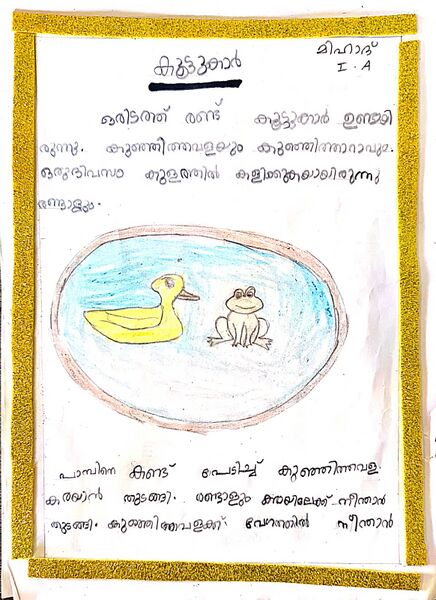 മിഹാദ്
I - A
കൂട്ടുകാർ
ഒരിടത്ത് രണ്ട് കൂട്ടുകാർ ഉണ്ടായി
രുന്നു. കുഞ്ഞിത്തവളയും കുഞ്ഞിത്താറാവും.
ഒരുദിവസം കുളത്തിൽ കളിക്കുകയായിരുന്നു
രണ്ടാളും.
പാമ്പിനെ കണ്ട് പേടിച്ച് കുഞ്ഞിത്തവള
കരയാൻ തുടങ്ങി. രണ്ടാളും കരയിലേക്ക് നീന്താൻ
തുടങ്ങി. കുഞ്ഞിത്തവളക്ക് വേഗത്തിൽ നീന്താൻ